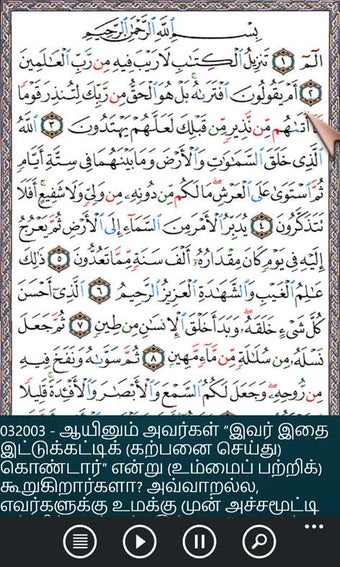 بِسْمِ اللَّهِ الرَّحْمَٰنِ الرَّحِيمِ
الٓمٓ ١ تَنزِيلُ ٱلْكِتَٰبِ لَا رَيْبَ فِيهِ مِن رَّبِّ ٱلْعَٰلَمِينَ
٢ أَمْ يَقُولُونَ ٱفْتَرَىٰهُ بَلْ هُوَ ٱلْحَقُّ مِن رَّبِّكَ لِتُنذِرَ قَوْمًا
مَّآ أَتَىٰهُم مِّن نَّذِيرٍ مِّن قَبْلِكَ لَعَلَّهُمْ يَهْتَدُونَ ٣ ٱللَّهُ
ٱلَّذِى خَلَقَ ٱلسَّمَٰوَٰتِ وَٱلْأَرْضَ وَمَا بَيْنَهُمَا فِى سِتَّةِ أَيَّامٍ
ثُمَّ ٱسْتَوَىٰ عَلَى ٱلْعَرْشِ مَا لَكُم مِّن دُونِهِۦ مِن وَلِىٍّ وَلَا شَفِيعٍ أَفَلَا
تَتَذَكَّرُونَ ٤ يُدَبِّرُ ٱلْأَمْرَ مِنَ ٱلسَّمَآءِ إِلَى ٱلْأَرْضِ ثُمَّ يَعْرُجُ
إِلَيْهِ فِى يَوْمٍ كَانَ مِقْدَارُهُۥٓ أَلْفَ سَنَةٍ مِّمَّا تَعُدُّونَ ٥ ذَٰلِكَ
عَٰلِمُ ٱلْغَيْبِ وَٱلشَّهَٰدَةِ ٱلْعَزِيزُ ٱلرَّحِيمُ ٦ ٱلَّذِىٓ أَحْسَنَ
كُلَّ شَىْءٍ خَلَقَهُۥ وَبَدَأَ خَلْقَ ٱلْإِنسَٰنِ مِن طِينٍ ٧ ثُمَّ جَعَلَ
نَسْلَهُۥ مِن سُلَٰلَةٍ مِّن مَّآءٍ مَّهِينٍ ٨ ثُمَّ سَوَّىٰهُ وَنَفَخَ فِيهِ
مِن رُّوحِهِۦ وَجَعَلَ لَكُمُ ٱلسَّمْعَ وَٱلْأَبْصَٰرَ وَٱلْأَفْـِٔدَةَ قَلِيلًا
032003 - ஆயினும் அவர்கள் “இவர் இதை
இட்டுக்கட்டிக் (கற்பனை செய்து)
கொண்டார்” என்று (உம்மைப் பற்றிக்)
கூறுகிறார்களா? அவ்வாறல்ல,
எவர்களுக்கு உமக்கு முன் அச்சமூட்டி